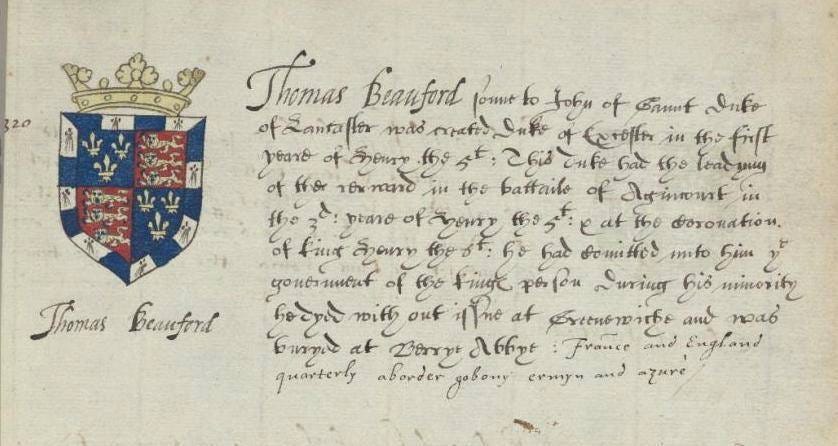 320
Thomas Beauford sonne to John of Gaunt Duke
of Lancaster was created Duke of Excester in the first
yeare of Henry the 5t: This Duke had the leadinng
of the rerward in the battaile of Agincourt in
the 3d: yeare of Henry the 5t: & at the Coronation.
of king Henry the 6t: he had comitted unto him ye
government of the kings person during his minority
he dyed with out issue at Greenewiche and was
buryed at Berrye Abbye : France and England
quarterly aborder gobony ermyn and azure
Thomas Beauford